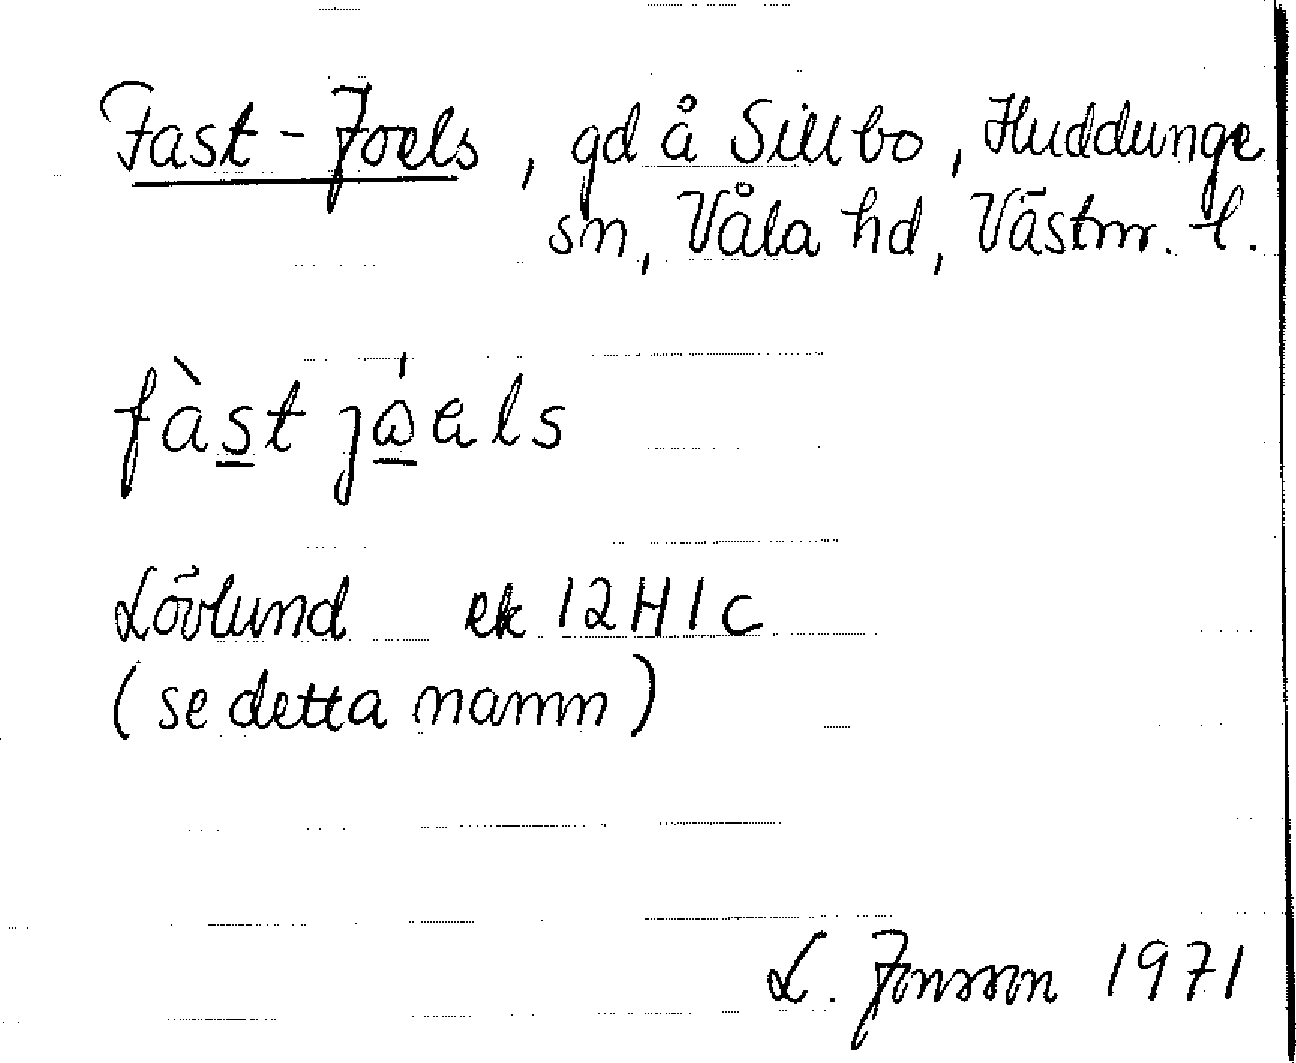 Fast-Joels, gd å Sillbo, Huddunge
sn, Våla hd, Västmr. l.
fàst jώ̲els
Lövlund ek 12H1c
(se detta namn)
L. Jonsson 1971